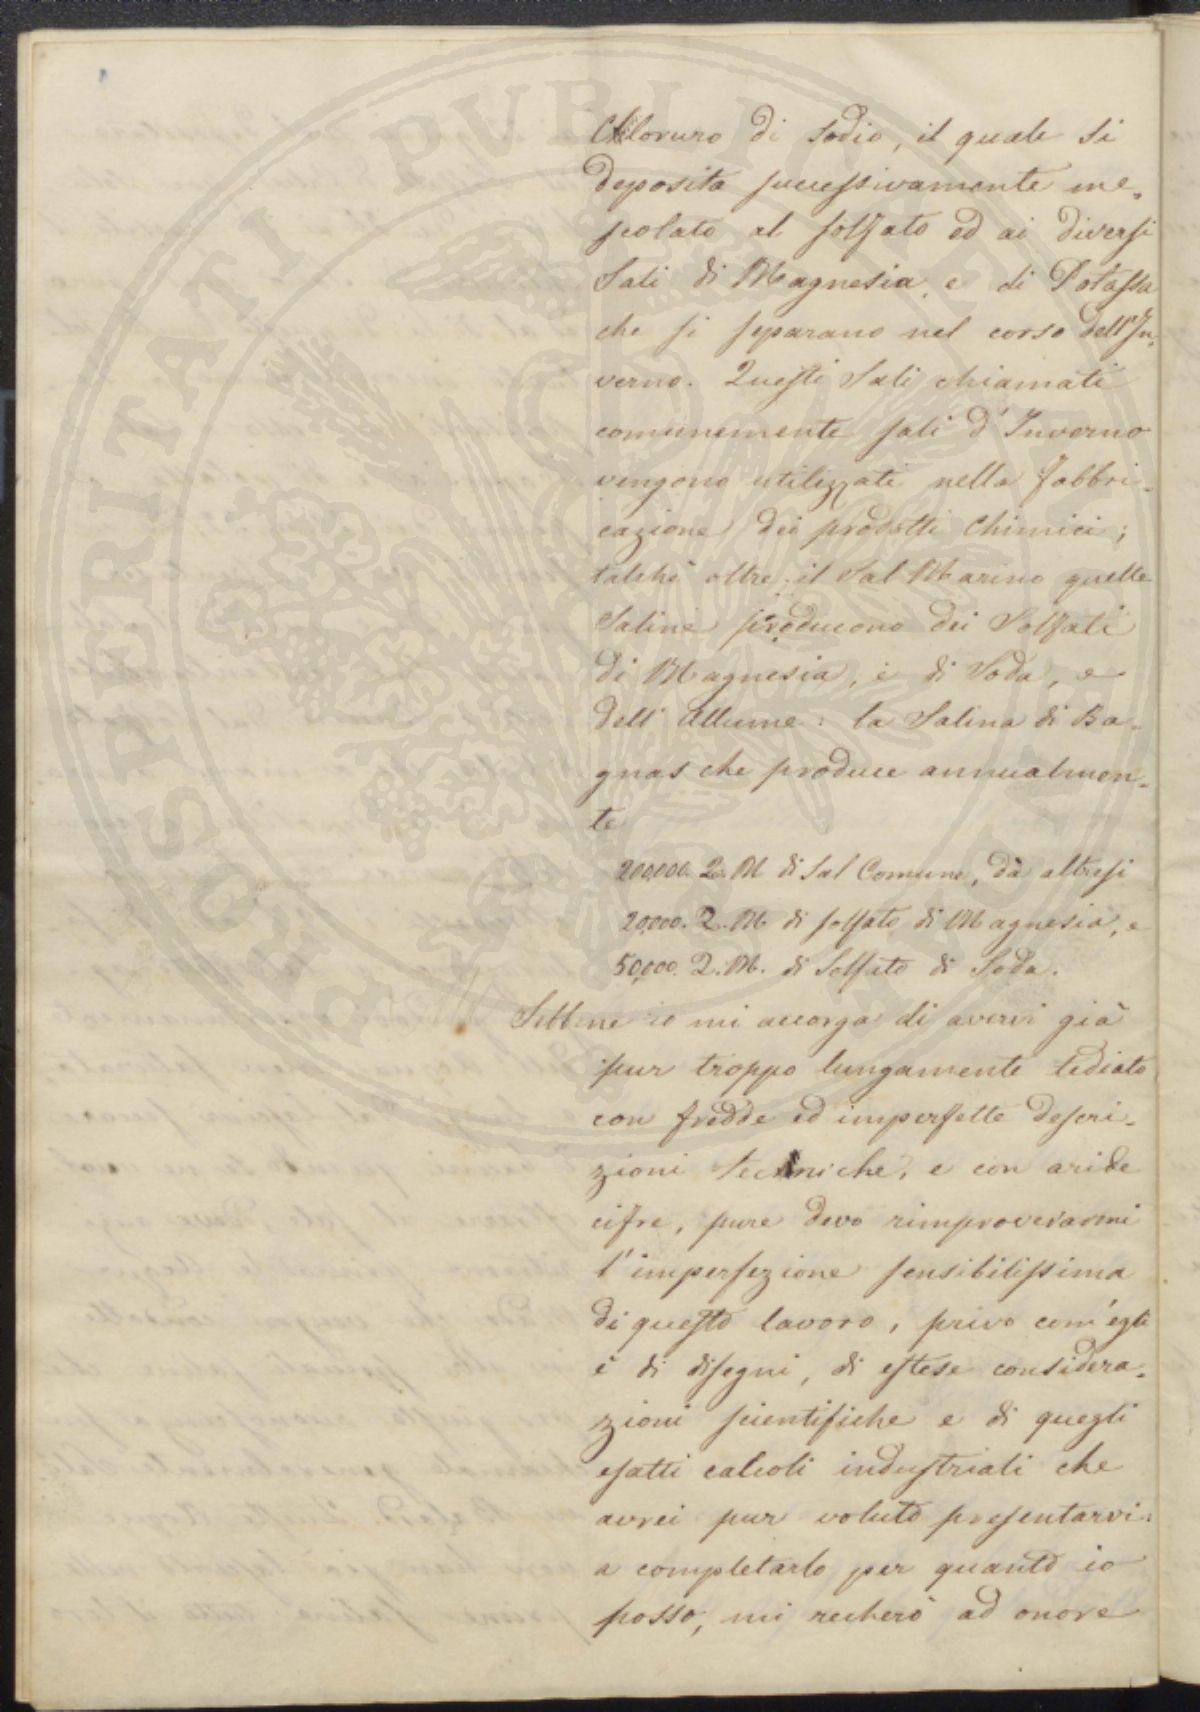 Cloruro di Sodio, il quale si
deposita successivamente me-
scolato al solfato ed ai diversi
Sali di Magnesia, e di Potassa
che si separano nel corso dell'In-
verno. Questi Sali chiamati
comunemente sali d'Inverno
vengono utilizzati nella fabbri-
cazione dei prodotti Chimici;
talchè oltre il Sal Marino quelle
Saline producono dei Solfati
di Magnesia, e di Soda, e
dell'Allume: la Salina di Ba-
gnas che produce annualmen-
te
200,000. Q. M di Sal Comune, dà altresi
20,000. Q. M. di solfato di Magnesia, e
50,000. Q. M. di Solfato di Soda.
Sebbene io mi accorga di avervi già
pur troppo lungamente tediato
con fredde ed imperfette descri-
zioni tecniche, e con aride
cifre, pure devo rimproverarmi
l'imperfezione sensibilissima
di questo lavoro, privo com'egli
è di disegni, di estese considera-
zioni scientifiche e di quegli
esatti calcoli industriali che
avrei pur voluto presentarvi:
a completarlo per quanto io
posso, mi recherò ad onore
PROSPERITATI PVBLICAE